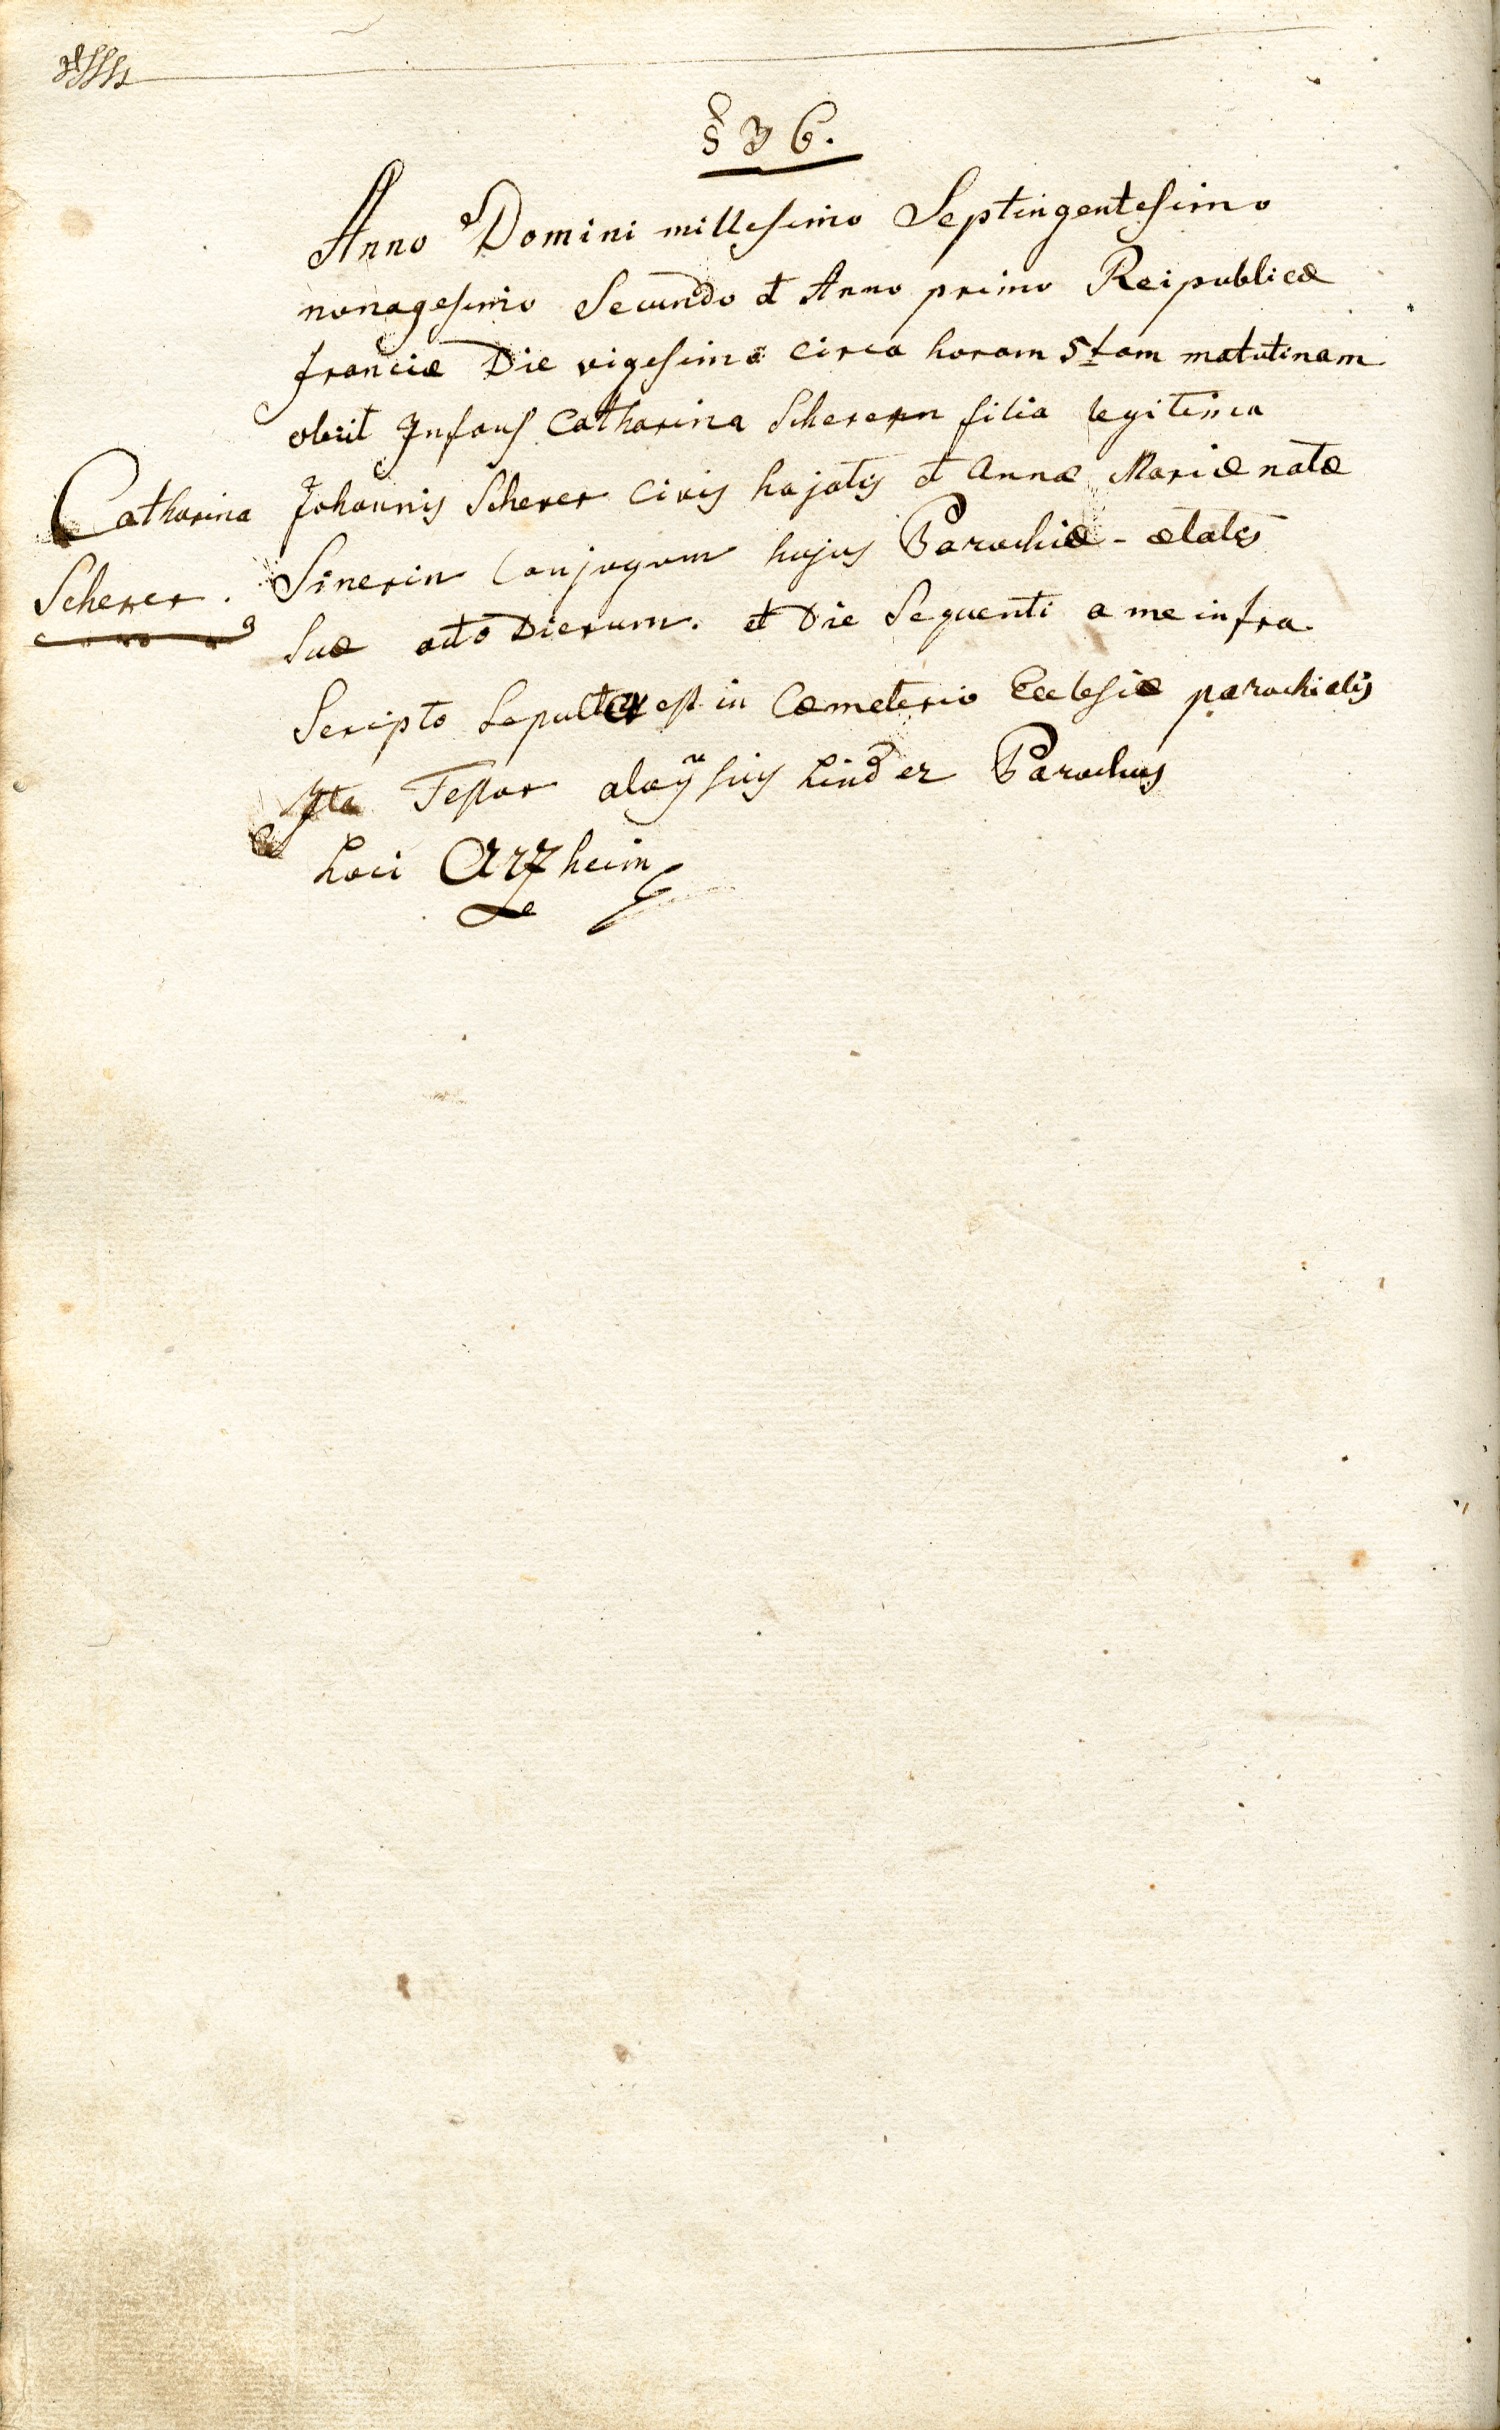 § 36.
Anno Domini millesimo Septingentesimo
nonagesimo Secundo et Anno primo Reipublicæ
franciæ Die vigesima circa horam 5tam matutinam
obiit Infans Catharina Scherern filia legitima
Catharina
Scherer.
Johannis Scherer Civis hujatis et Annæ Mariæ natæ
Sinerin Conjugum hujus Parochiæ - ætatis
Suæ octo Dierum. et Die Sequenti a me infra
Scripto Sepulta est in Cæmeterio Ecclesiæ parochialis
Ita Testor aloÿsius Linder Parochus
Loci Arzheim